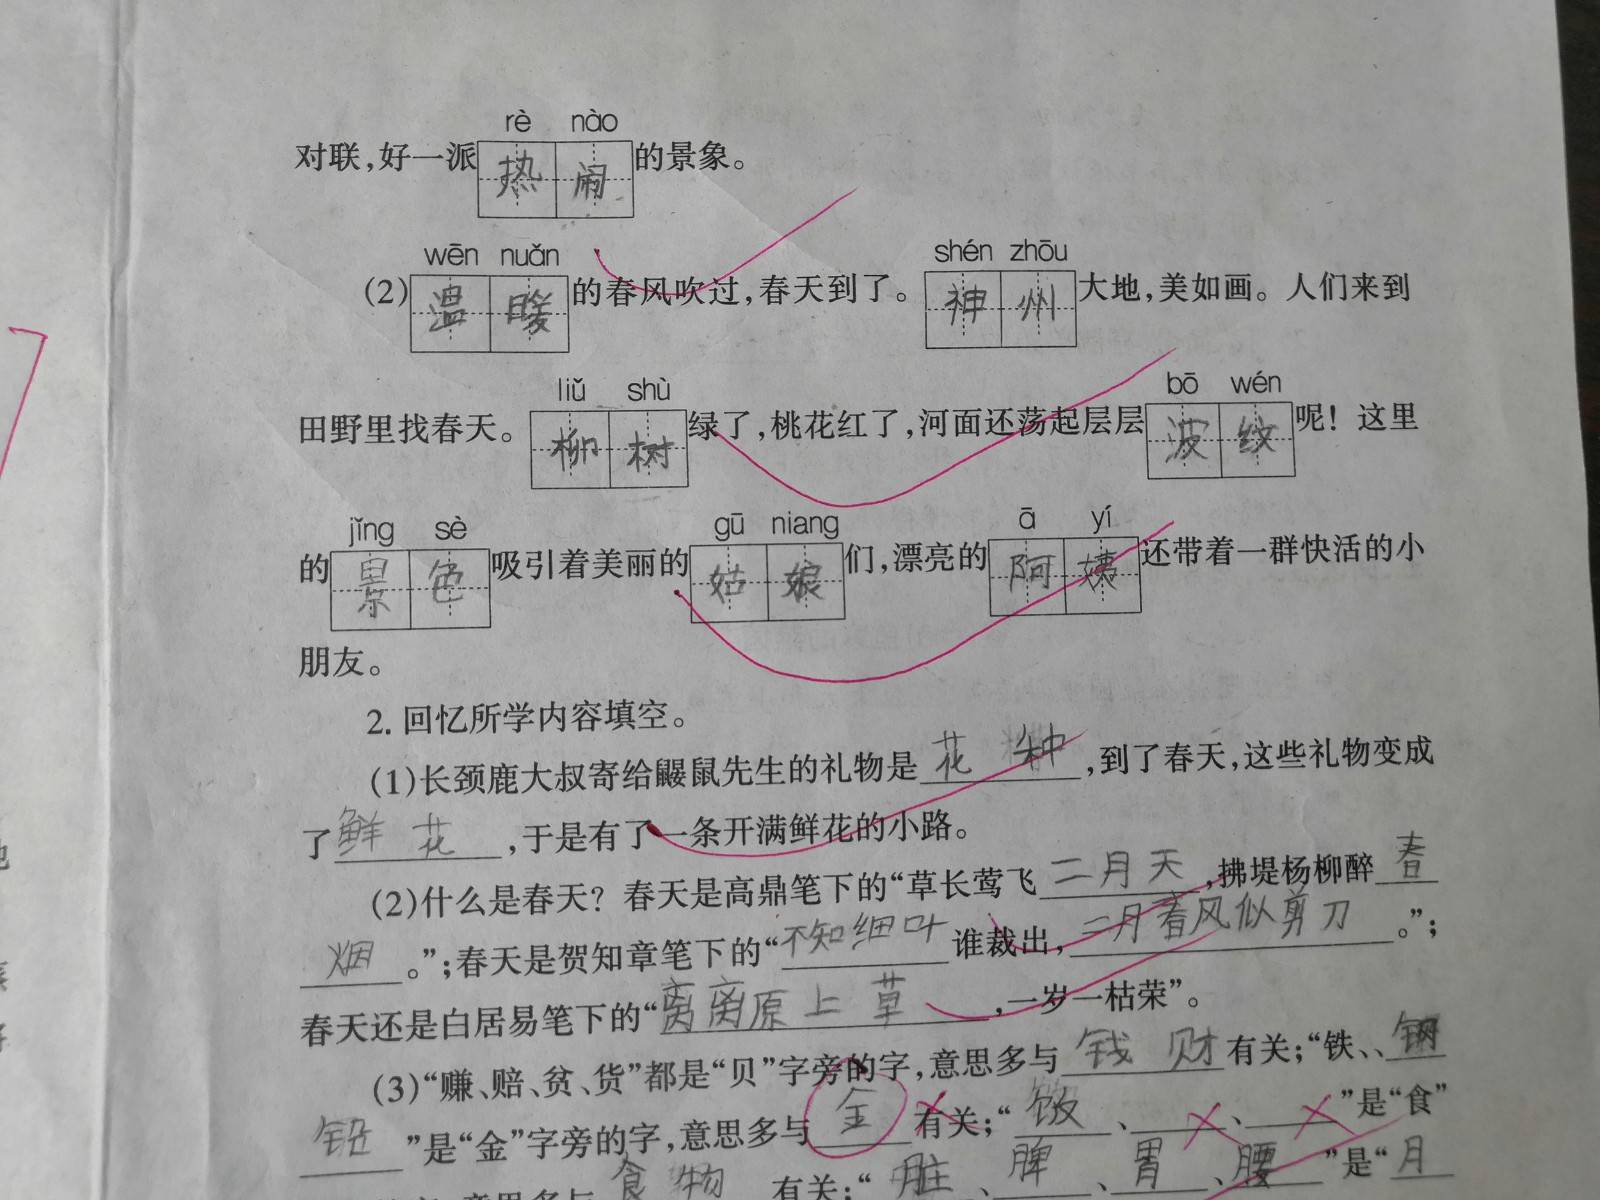 rè nào
对联，好一派热闹的景象。
wēn nuǎn shén zhōu
(2)温暖的春风吹过，春天到了。神州大地，美如画。人们来到
liǔ shù bō wén
田野里找春天。柳树绿了，桃花红了，河面还荡起层层波纹呢！这里
jǐng sè gū niang ā yí
的景色吸引着美丽的姑娘们，漂亮的阿姨还带着一群快活的小
朋友。
2. 回忆所学内容填空。
(1)长颈鹿大叔寄给鼹鼠先生的礼物是花种，到了春天，这些礼物变成
了鲜花，于是有了一条开满鲜花的小路。
(2)什么是春天？春天是高鼎笔下的“草长莺飞二月天，拂堤杨柳醉春
烟。”；春天是贺知章笔下的“不知细叶谁裁出，二月春风似剪刀。”；
春天还是白居易笔下的“离离原上草，一岁一枯荣”。
(3)“赚、赔、贫、货”都是“贝”字旁的字，意思多与钱财有关；“铁、、钢
”是“金”字旁的字，意思多与金有关；“饭、、”是“食”
食物有关；“脏、脾、胃、腰”是“月